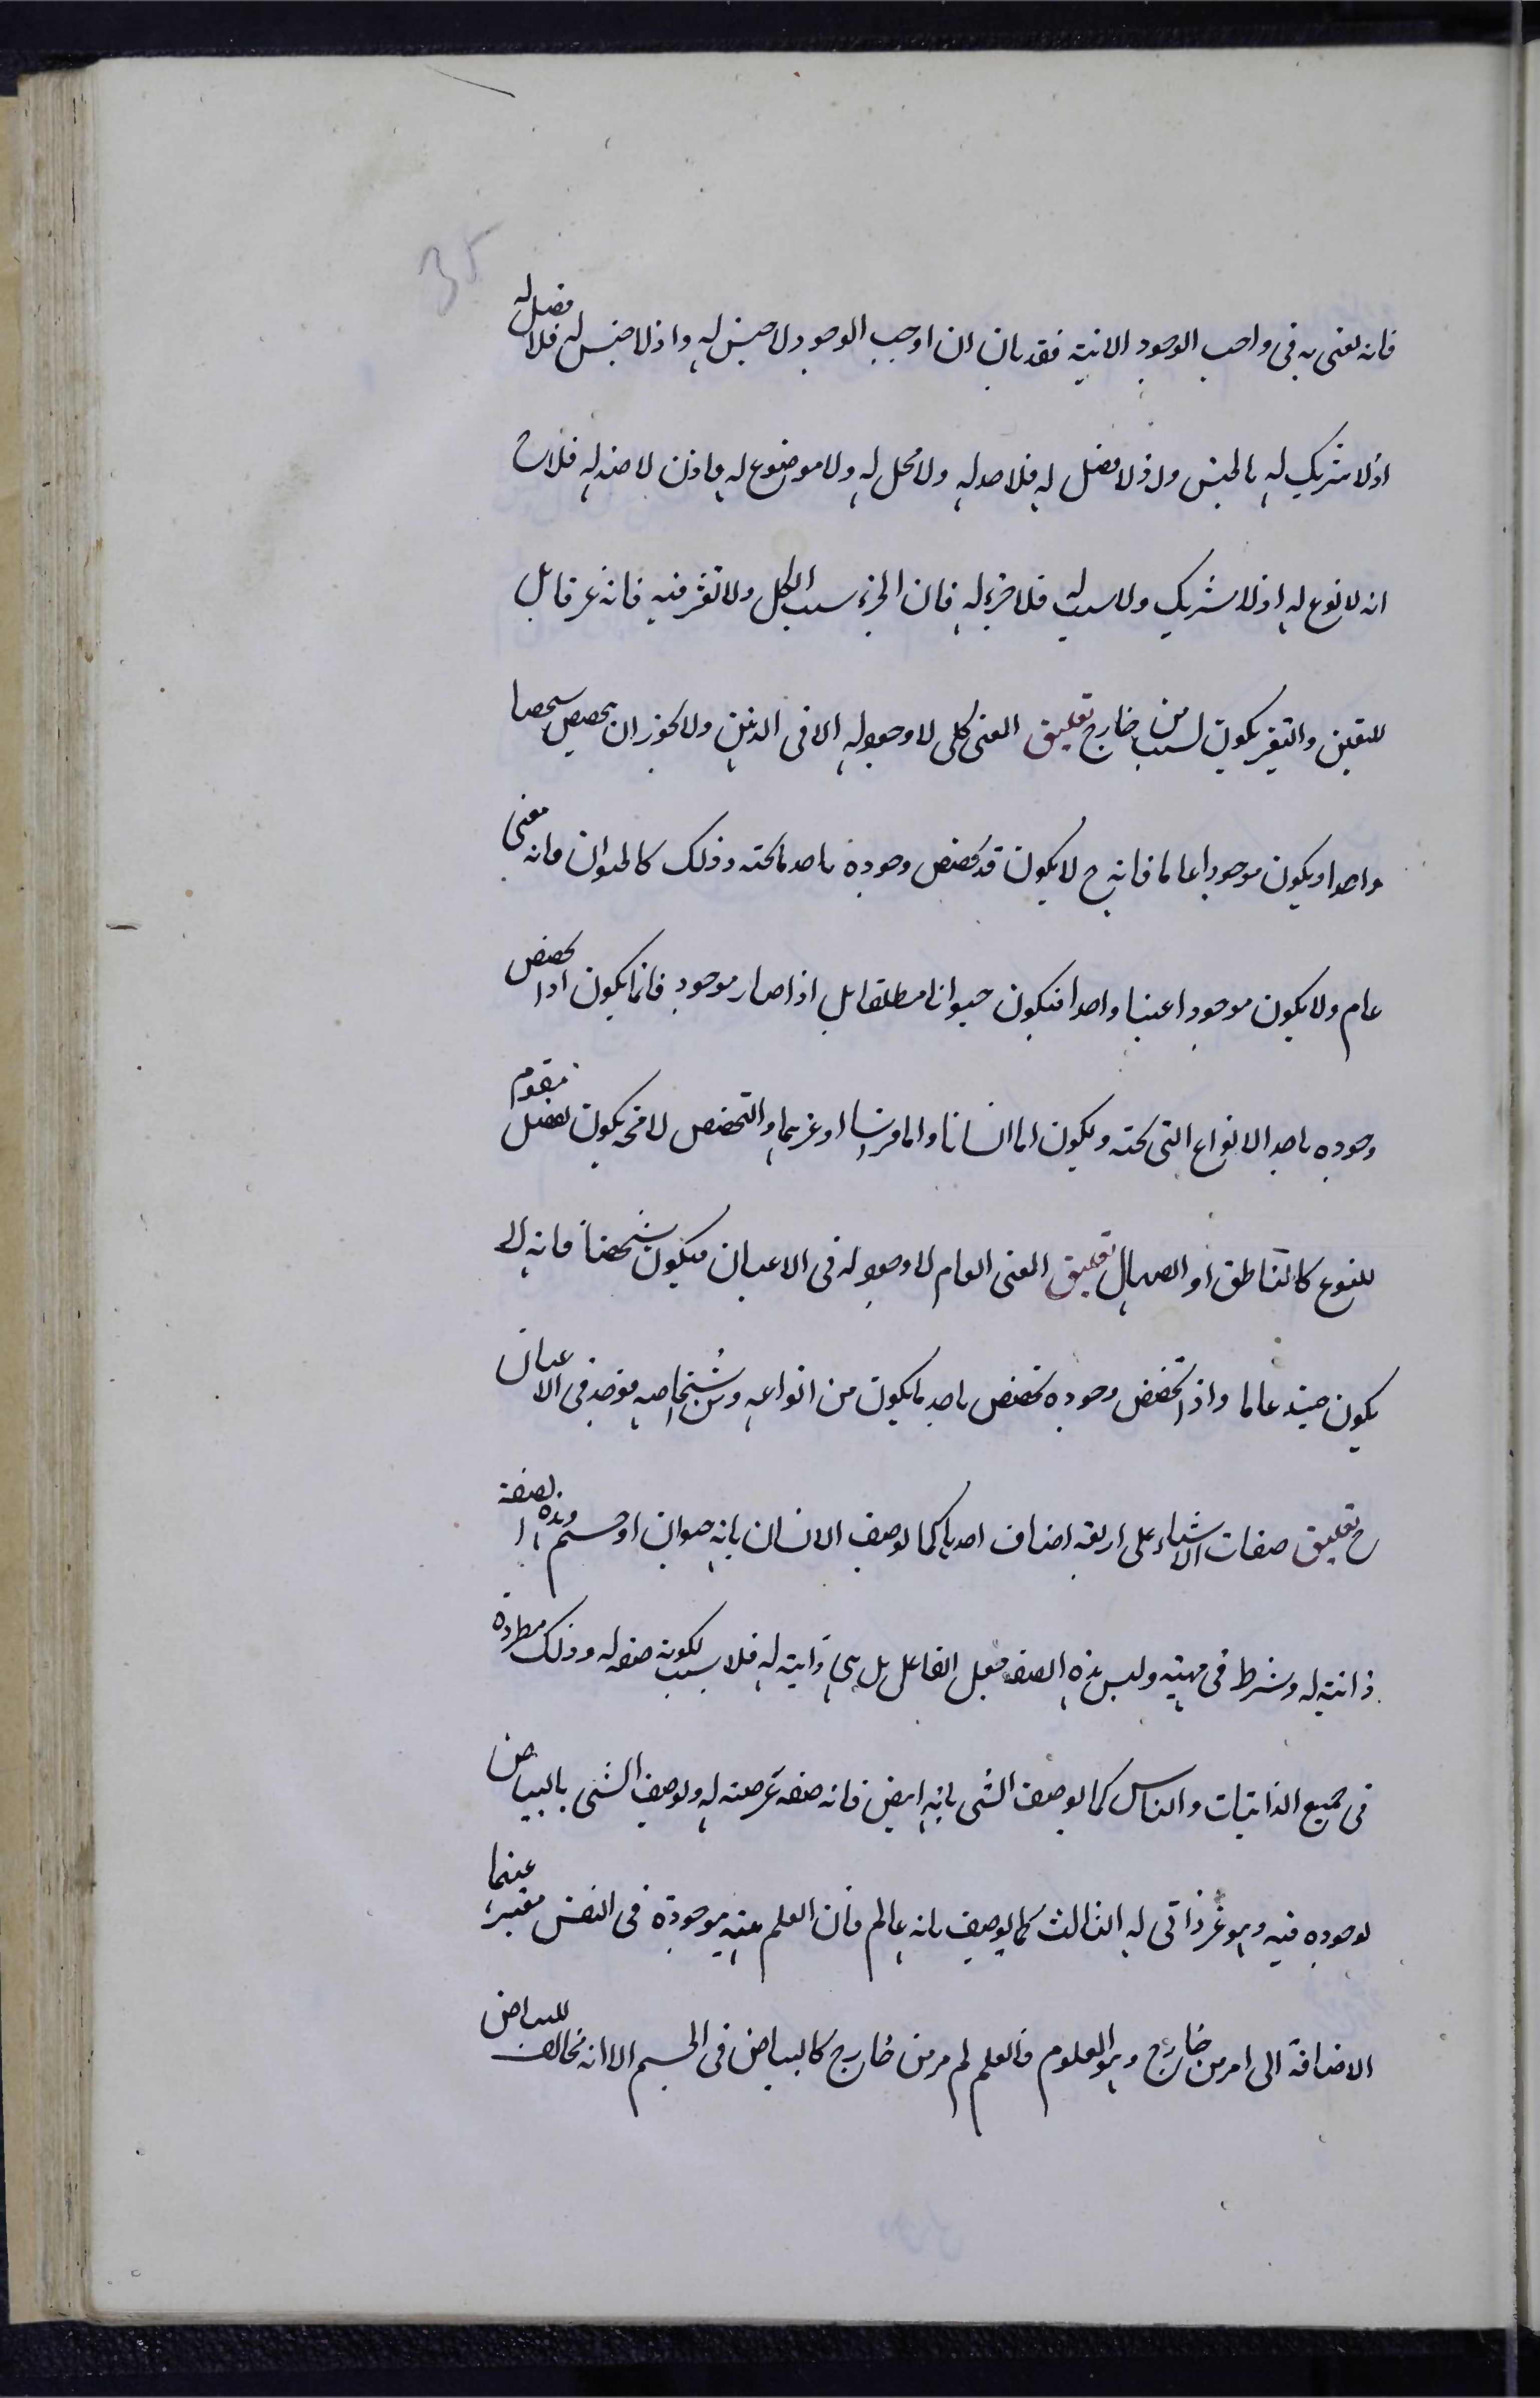 35
فانه نعنى به فى واجب الوجود الانية فقد بان ان اوجب الوجود لا جنس له واذ لا جنس له فلا فصل له
اذ لا شريك له بالجنس واذ لا فصل له فلا حد له ولا محل له ولا موضوع له فاذن لا ضد له فلاح
انه لا نوع له اذ لا شريك ولا سبب له فلا جزء له فان الجزء سبب الكل ولا تغير فيه فانه غير قابل
للتغير والتغير يكون لسبب من خارج تعليق المعنى كلى لا وجود له الا فى الذهن ولا يجوز ان يتخصص شخصا
واحدا ويكون موجودا عاما فانه ح لا يكون قد تخصص وجوده باحد ما تحته وذلك كالحيوان فانه معنى
عام ولا يكون موجودا عينيا واحدا فيكون حيوانا مطلقا بل اذا صار موجود فانما يكون اذا تخصص
وجوده باحد الانواع التى تحته ويكون اما انسانا واما فرسا او غيرهما والتخصص لا محة يكون بفصل مقوم
للنوع كالناطق او الصهال تعليق المعنى العام لا وجود له فى الاعيان فيكون شخصا فانه لا
يكون حينئذ عاما واذا تخصص وجوده تخصص باحد ما يكون من انواعه ومن شخاصه فوجد فى الاعيان
ح تعليق صفات الاشياء على اربعة اصناف احدها كما يوصف الانسان بانه حيوان او جسم وهذه الصفة
ذاتية له وشرط فى مهيته وليس هذه الصفة بجعل الفاعل بل هى ذاتية له فلا سبب لكونه صفه له وذلك مطردة
فى جميع الذاتيات والثانى كما يوصف الشى بانه ابيض فانه صفه عرضته له ويوصف الشى بالبياض
لوجوده فيه وهو غير ذاتى له الثالث كما يوصف بانه عالم فان العلم هيئة موجودة فى النفس معتبرة عنها
الاضافة الى امر من خارج وهو المعلوم فالعلم لم مر من خارج كالبياض فى الجسم الا انه يخالف للبياض